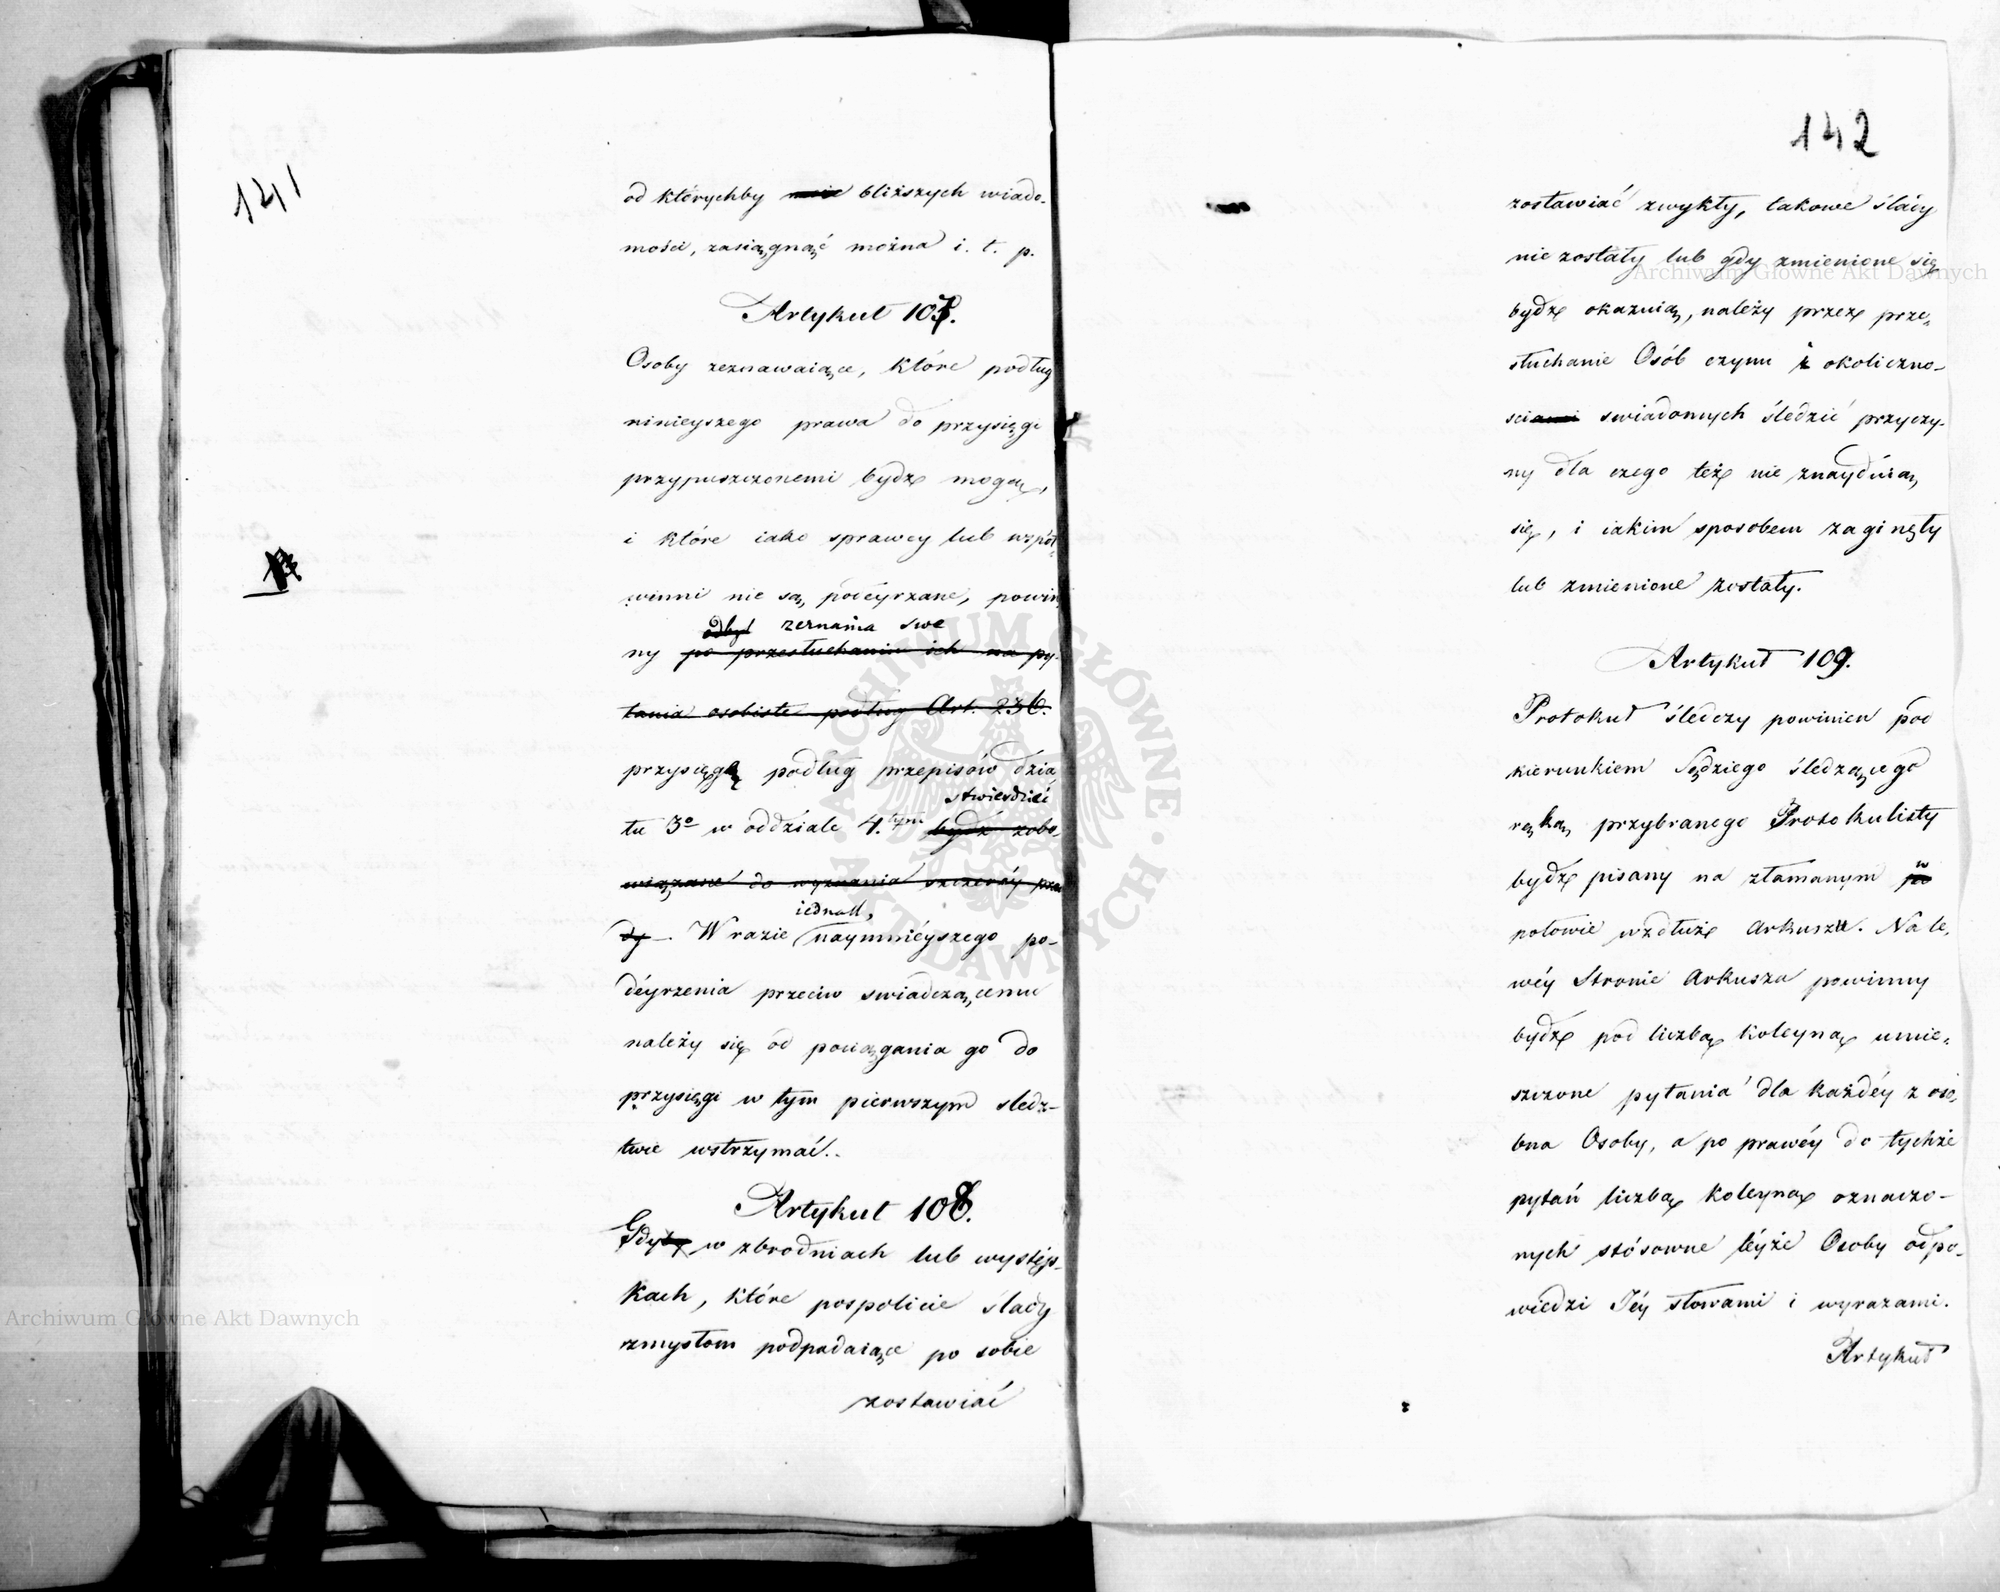 141
od którychby bliższych wiado-
mości, zasiągnąć można i. t. p.
Artykuł 107.
Osoby zeznawaiące, które podług
ninieyszego prawa do przysięgi
przypuszczonemi bydź mogą,
i które iako sprawcy lub współ-
winni nie są podeyrzane, powin
odbyć zeznania swe
ny po przesłuchaniu ich na py-
tania osobiste podług Art. 236.
przysięgą podług przepisów dzia
stwierdzić
łu 3º w oddziale 4.tym bydź zobo-
wiązane do wyznania szczeréy pra
dy — W razie naymnieyszego po-
iednak,
déyrzenia przeciw swiadczącemu
należy się od pociągania go do
przysięgi w tym pierwszym sledz-
twie wstrzymać.
Artykuł 108.
Gdyby w zbrodniach lub występ-
kach, które pospolicie ślady
zmysłom podpadaiące po sobie
zostawiać
142
zostawiać zwykły, takowe ślady
nie zostały lub gdy zmienione się
bydź okazuią, należy przez prze-
słuchanie Osób czynu i okoliczno-
sciami swiadomych śledzić przyczy-
ny dla czego też nie znayduią
się, i iakim sposobem zaginęły
lub zmienione zostały.
Artykuł 109.
Protokuł śledczy powinien pod
kierunkiem Sędziego śledzącego
ręką przybranego Protokulisty
bydź pisany na złamanym w
po
połowie wzdłuż Arkuszu. Na le-
wéy Stronie Arkusza powinny
bydź pod liczbą koleyną umie-
szczone pytania dla każdéy z oso-
bna Osoby, a po prawéy do tychże
pytań liczbą koleyną oznaczo-
nych stósowne téyże Osoby odpo-
wiedzi Jéy słowami i wyrazami.
Artykuł
Archiwum Główne Akt Dawnych
Archiwum Główne Akt Dawnych
ARCHIWUM GŁÓWNE · AKT DAWNYCH ·